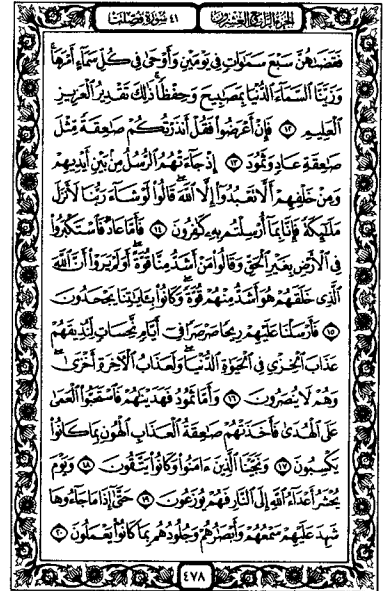 الجزء الرابع والعشرون ٤١ سورة فصلت
فَقَضَىٰهُنَّ سَبْعَ سَمَـٰوَاتٍ فِى يَوْمَيْنِ وَأَوْحَىٰ فِى كُلِّ سَمَآءٍ أَمْرَهَا ۚ
وَزَيَّنَّا ٱلسَّمَآءَ ٱلدُّنْيَا بِمَصَـٰبِيحَ وَحِفْظًا ۚ ذَٰلِكَ تَقْدِيرُ ٱلْعَزِيزِ
ٱلْعَلِيمِ ١٢ فَإِنْ أَعْرَضُوا۟ فَقُلْ أَنذَرْتُكُمْ صَـٰعِقَةً مِّثْلَ
صَـٰعِقَةِ عَادٍ وَثَمُودَ ١٣ إِذْ جَآءَتْهُمُ ٱلرُّسُلُ مِنۢ بَيْنِ أَيْدِيهِمْ
وَمِنْ خَلْفِهِمْ أَلَّا تَعْبُدُوٓا۟ إِلَّا ٱللَّهَ ۖ قَالُوا۟ لَوْ شَآءَ رَبُّنَا لَأَنزَلَ
مَلَـٰٓئِكَةً فَإِنَّا بِمَآ أُرْسِلْتُم بِهِۦ كَـٰفِرُونَ ١٤ فَأَمَّا عَادٌ فَٱسْتَكْبَرُوا۟
فِى ٱلْأَرْضِ بِغَيْرِ ٱلْحَقِّ وَقَالُوا۟ مَنْ أَشَدُّ مِنَّا قُوَّةً ۖ أَوَلَمْ يَرَوْا۟ أَنَّ ٱللَّهَ
ٱلَّذِى خَلَقَهُمْ هُوَ أَشَدُّ مِنْهُمْ قُوَّةً ۖ وَكَانُوا۟ بِـَٔايَـٰتِنَا يَجْحَدُونَ
١٥ فَأَرْسَلْنَا عَلَيْهِمْ رِيحًا صَرْصَرًا فِىٓ أَيَّامٍ نَّحِسَاتٍ لِّنُذِيقَهُمْ
عَذَابَ ٱلْخِزْىِ فِى ٱلْحَيَوٰةِ ٱلدُّنْيَا ۖ وَلَعَذَابُ ٱلْـَٔاخِرَةِ أَخْزَىٰ ۖ
وَهُمْ لَا يُنصَرُونَ ١٦ وَأَمَّا ثَمُودُ فَهَدَيْنَـٰهُمْ فَٱسْتَحَبُّوا۟ ٱلْعَمَىٰ
عَلَى ٱلْهُدَىٰ فَأَخَذَتْهُمْ صَـٰعِقَةُ ٱلْعَذَابِ ٱلْهُونِ بِمَا كَانُوا۟
يَكْسِبُونَ ١٧ وَنَجَّيْنَا ٱلَّذِينَ ءَامَنُوا۟ وَكَانُوا۟ يَتَّقُونَ ١٨ وَيَوْمَ
يُحْشَرُ أَعْدَآءُ ٱللَّهِ إِلَى ٱلنَّارِ فَهُمْ يُوزَعُونَ ١٩ حَتَّىٰٓ إِذَا مَا جَآءُوهَا
شَهِدَ عَلَيْهِمْ سَمْعُهُمْ وَأَبْصَـٰرُهُمْ وَجُلُودُهُم بِمَا كَانُوا۟ يَعْمَلُونَ ٢٠
٤٧٨